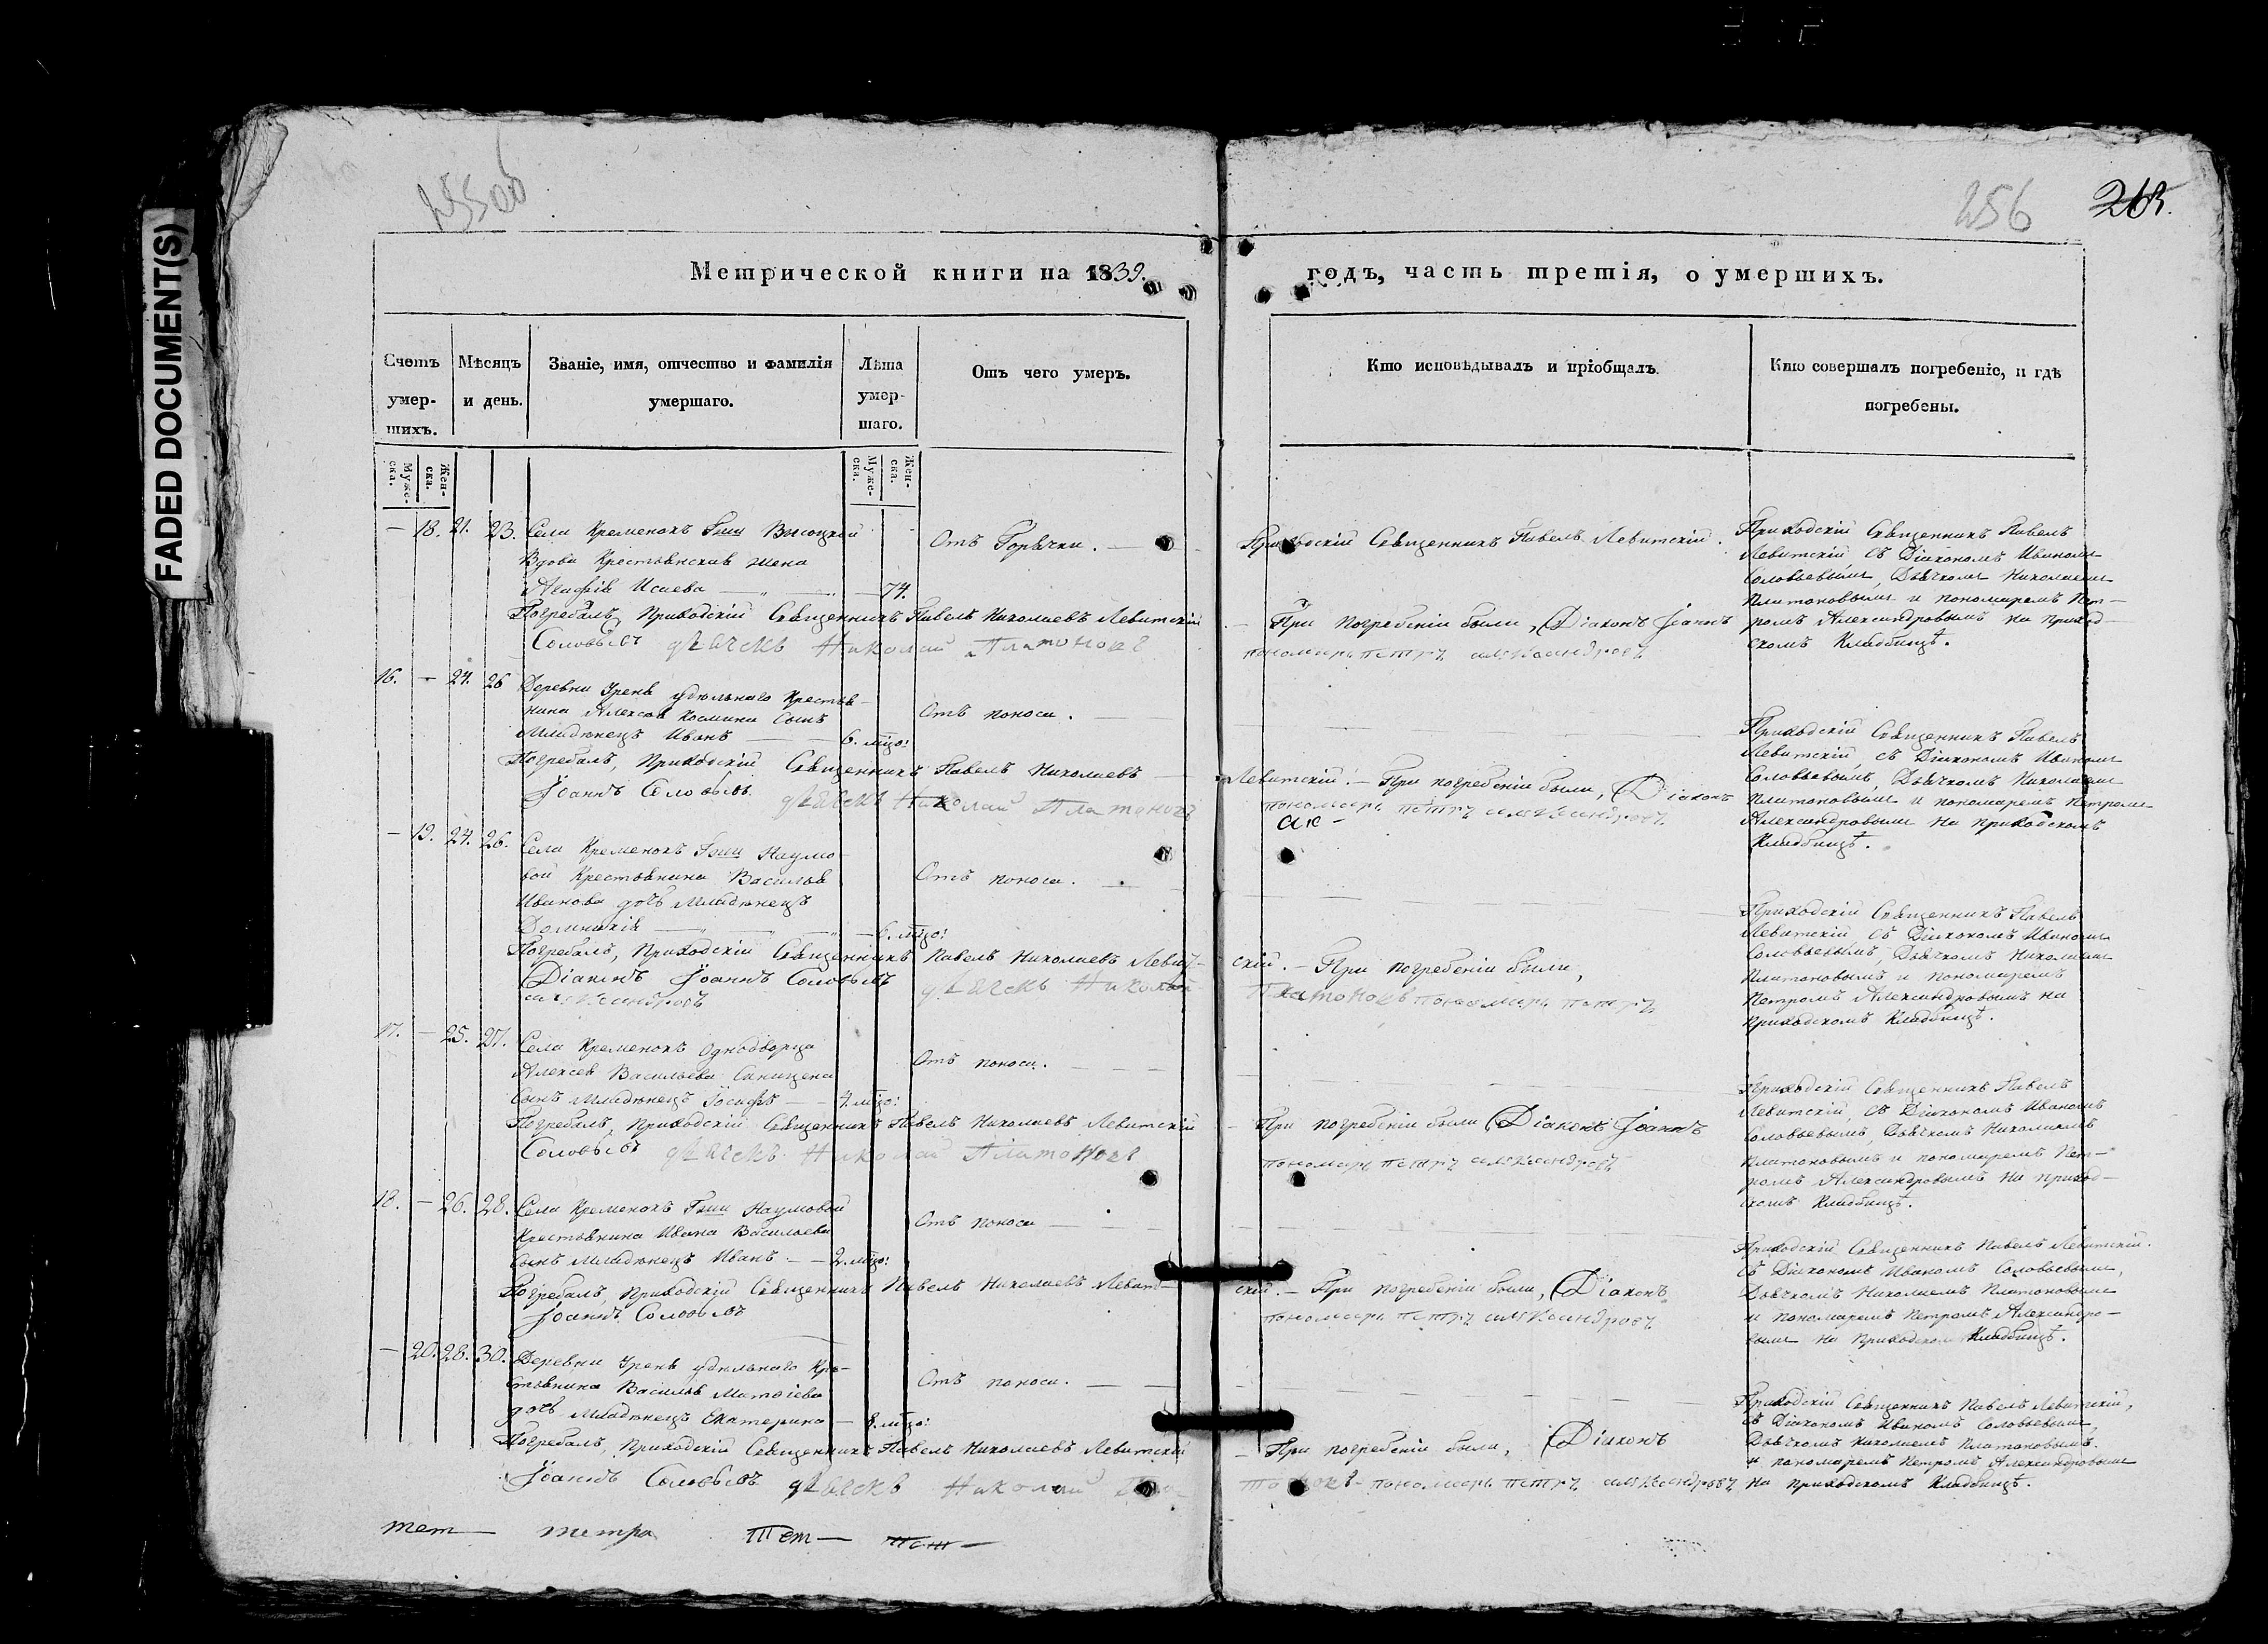 FADED DOCUMENT(S)
256
265.
Метрической книги на 1839.
годъ, часть третія, о умершихъ.
Счетъ умер-шихъ.
Мѣсяцъ и день.
Званіе, имя, отчество и фамилія умершаго.
Лѣта умер-шаго.
Отъ чего умеръ.
Кто исповѣдывалъ и пріобщалъ.
Кто совершалъ погребеніе, и гдѣ погребены.
Муже-ска.
Жен-ска.
Муже-ска.
Жен-ска.
— 18. 21. 23. Села Кременокъ Гжи Высоцкой
Вдова Крестьянская жена
Агафія Исаева — 74.
Отъ Горячки.
Приходскій Священникъ Павелъ Левитскій.
Приходскій Священникъ Павелъ
Левитскій, съ Діакономъ Иваномъ
Соловьевымъ, Дьячкомъ Николаемъ
Платоновымъ и пономаремъ Пет-
ромъ Александровымъ на приход-
скомъ Кладбищѣ.
Погребалъ, Приходскій Священникъ Павелъ Николаевъ Левитскій
— При погребеніи были, Діаконъ Іоаннъ
Соловьевъ дьячекъ Николай Платоновъ
пономарь петръ александровъ
16. — 24. 26 Деревни Уренъ удѣльнаго Крестья-
нина Алексѣя Космина Сынъ
Младенецъ Иванъ — 6. мцо:
Отъ поноса.
Приходскій Священникъ Павелъ
Левитскій, съ Діакономъ Иваномъ
Соловьевымъ, Дьячкомъ Николаемъ
Платоновымъ и пономаремъ Петромъ
Александровымъ на приходскомъ
Кладбищѣ.
Погребалъ, Приходскій Священникъ Павелъ Николаевъ
Левитскій. — При погребеніи были, Діаконъ
Іоаннъ Соловьевъ дьячекъ Николай Платоновъ
пономарь петръ александровъ
— 19. 24. 26. Села Кременокъ Гжи Наумо-
вой Крестьянина Василья
Иванова дочь младенецъ
Домникія — 6. мцо:
Отъ поноса.
Приходскій Священникъ Павелъ
Левитскій съ Діакономъ Иваномъ
Соловьевымъ, Дьячкомъ Николаемъ
Платоновымъ и пономаремъ
Петромъ Александровымъ на
приходскомъ Кладбищѣ.
Погребалъ, Приходскій Священникъ Павелъ Николаевъ Левит-
скій. — При погребеніи были,
Діаконъ Іоаннъ Соловьевъ дьячекъ Николай
Платоновъ пономарь петръ
александровъ
17. — 25. 27. Села Кременокъ Однодворца
Алексѣя Васильева
Сынъ Младенецъ Іосифъ — 4. мцо:
Отъ поноса.
Приходскій Священникъ Павелъ
Левитскій, съ Діакономъ Иваномъ
Соловьевымъ, Дьячкомъ Николаемъ
Платоновымъ и пономаремъ Пет-
ромъ Александровымъ на приход-
скомъ Кладбищѣ.
Погребалъ, Приходскій Священникъ Павелъ Николаевъ Левитскій
— При погребеніи были Діаконъ Іоаннъ
Соловьевъ дьячекъ Николай Платоновъ
пономарь петръ александровъ
18. — 26. 28. Села Кременокъ Гжи Наумовой
Крестьянина Ивана Васильева
Сынъ младенецъ Иванъ — 2. мцо:
Отъ поноса
Приходскій Священникъ Павелъ Левитскій.
съ Діакономъ Иваномъ Соловьевымъ,
Дьячкомъ Николаемъ Платоновымъ
и пономаремъ Петромъ Александро-
вымъ на приходском Кладбищѣ.
Погребалъ, Приходскій Священникъ Павелъ Николаевъ Левит-
скій. — При погребеніи были, Діаконъ
Іоаннъ Соловьевъ
пономарь петръ александровъ
— 20. 28. 30. Деревни Уренъ удѣльнаго Кре-
стьянина Василья Матвіева
дочь Младенецъ Екатерина — 8. мцо:
Отъ поноса.
Приходскій Священникъ Павелъ Левитскій,
съ Діакономъ Иваномъ Соловьевымъ
Дьячкомъ Николаемъ Платоновымъ.
и пономаремъ Петромъ Александровымъ
на приходскомъ Кладбищѣ.
Погребалъ, Приходскій Священникъ Павелъ Николаевъ Левитскій
— При погребеніи были, Діаконъ
Іоаннъ Соловьевъ дьячекъ Николай
пономарь петръ александровъ